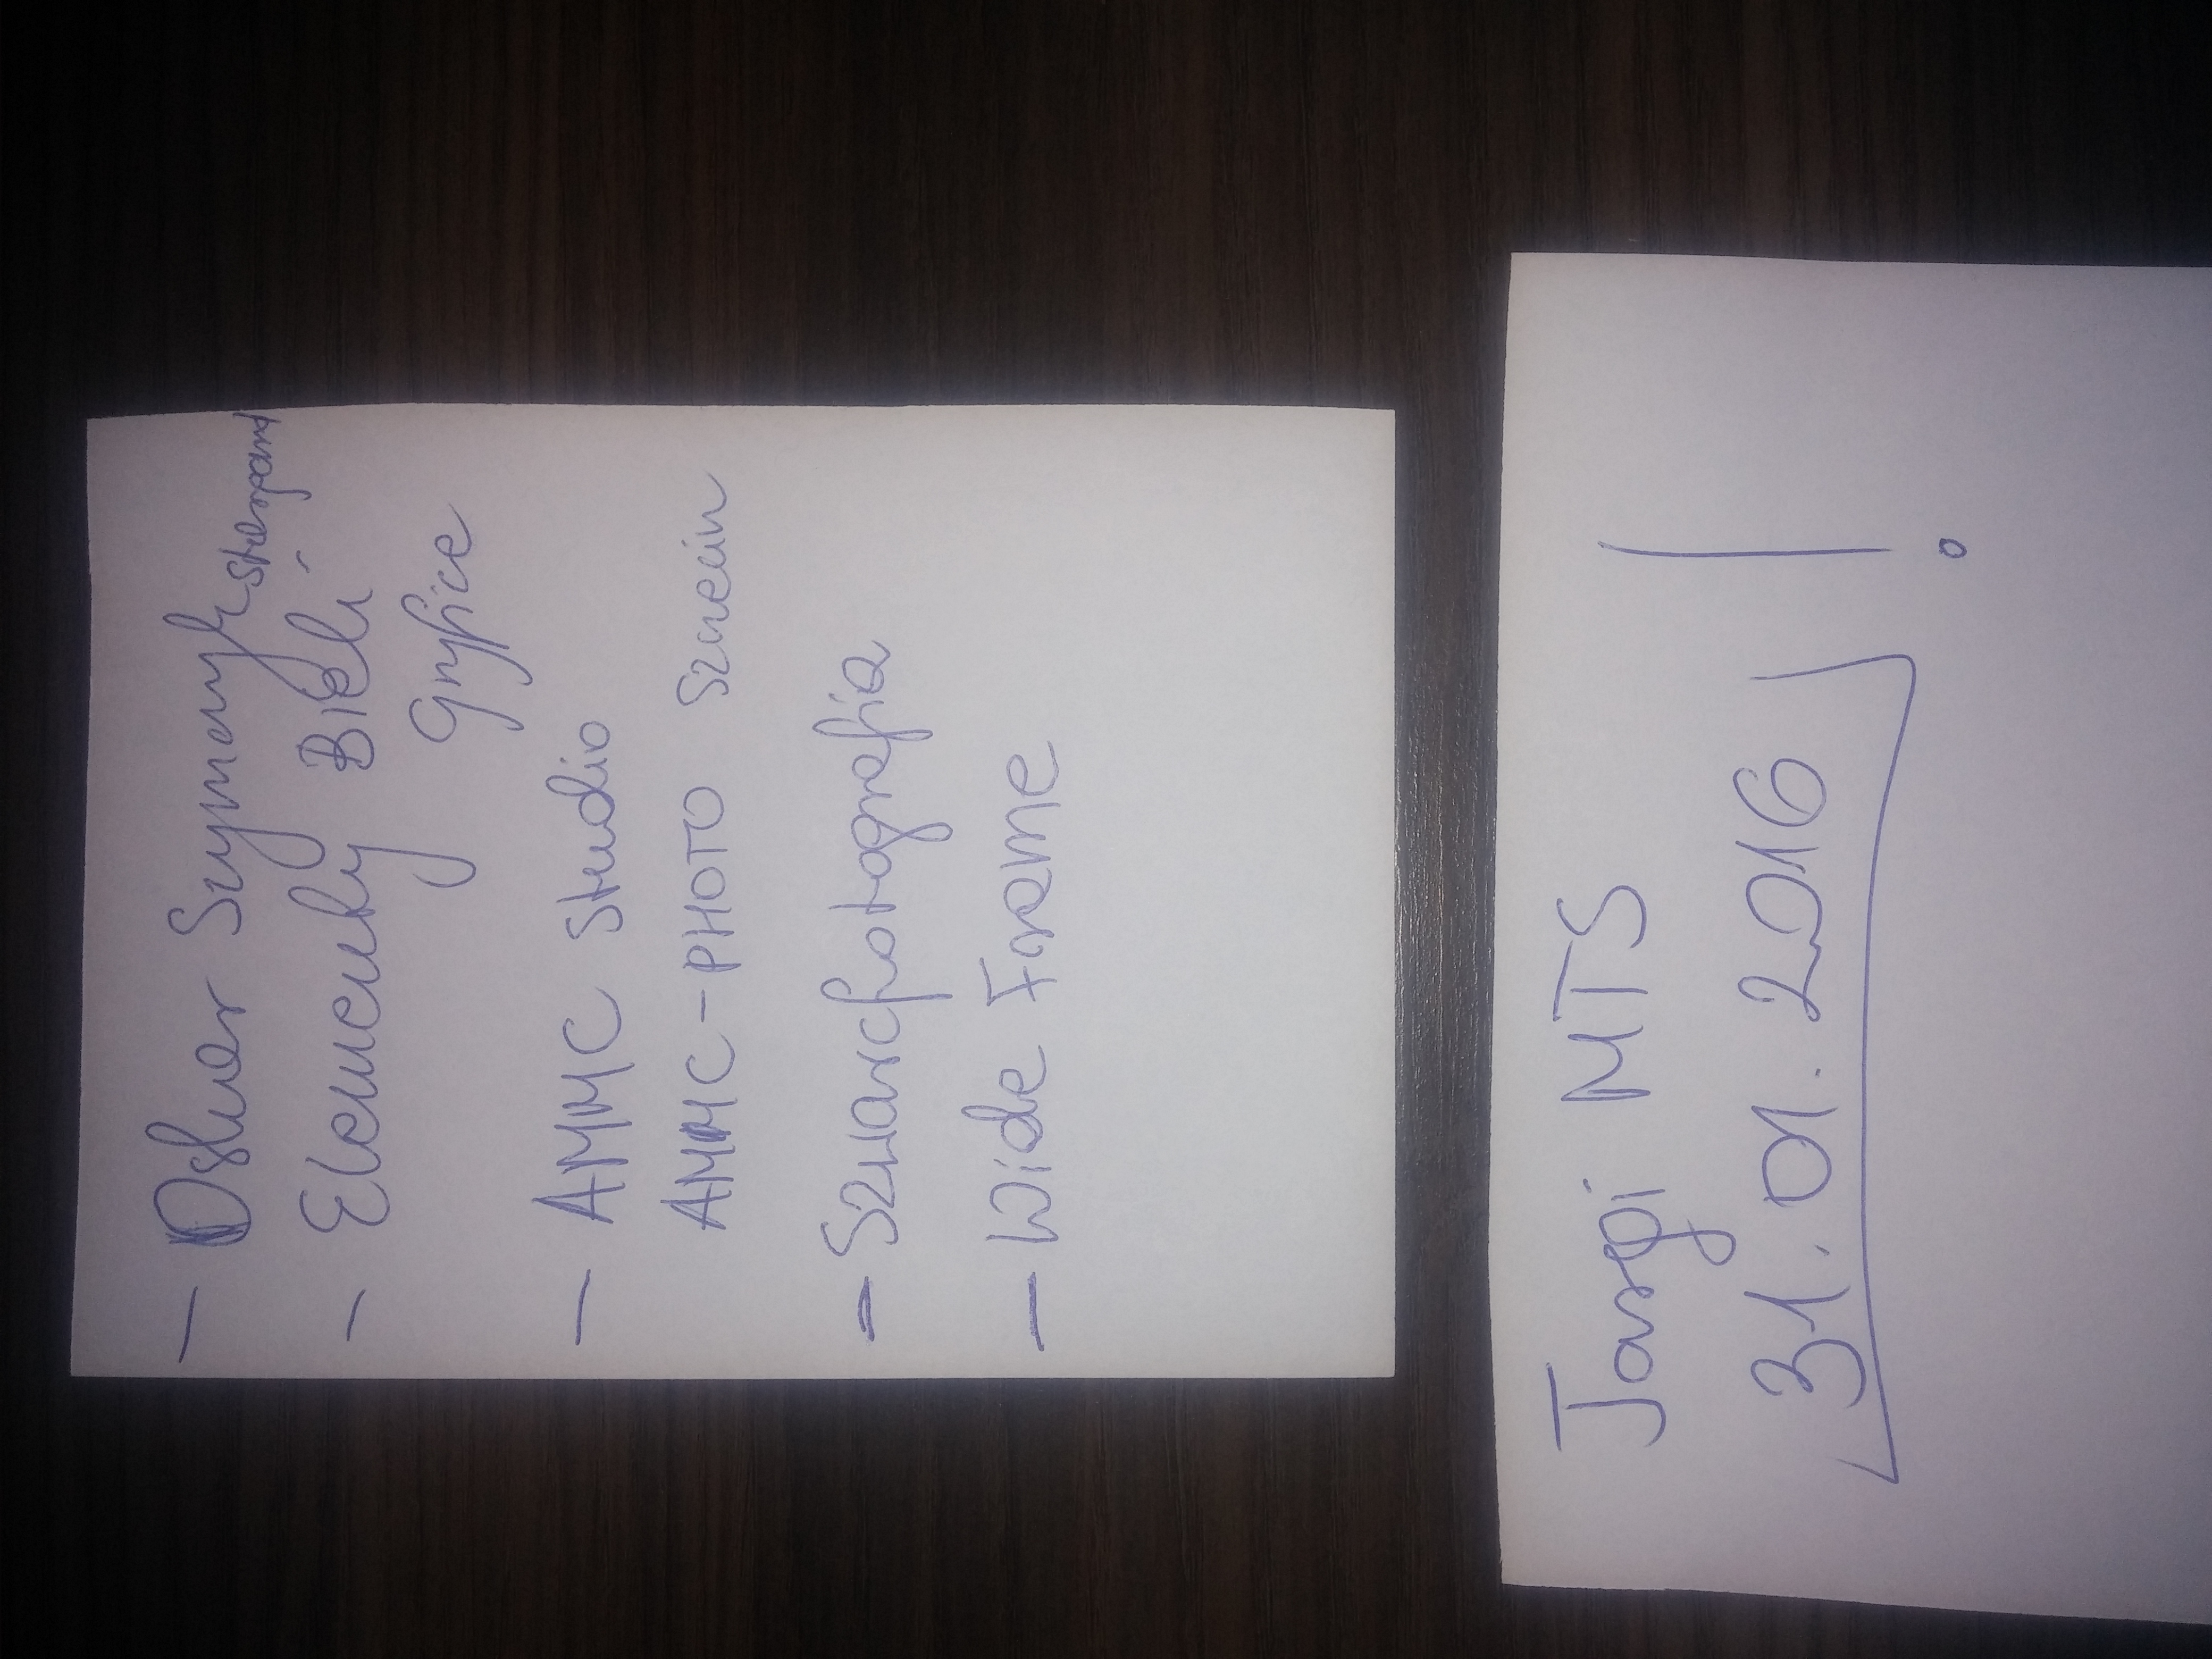 - Oskar Szymczyk Stargard
- Elementy Bieli
Gryfice
- AMMC Studio
AMMC-PHOTO Szczecin
- Szwarcfotografia
- Wide Frame
Targi MTS
31.01.2016 !